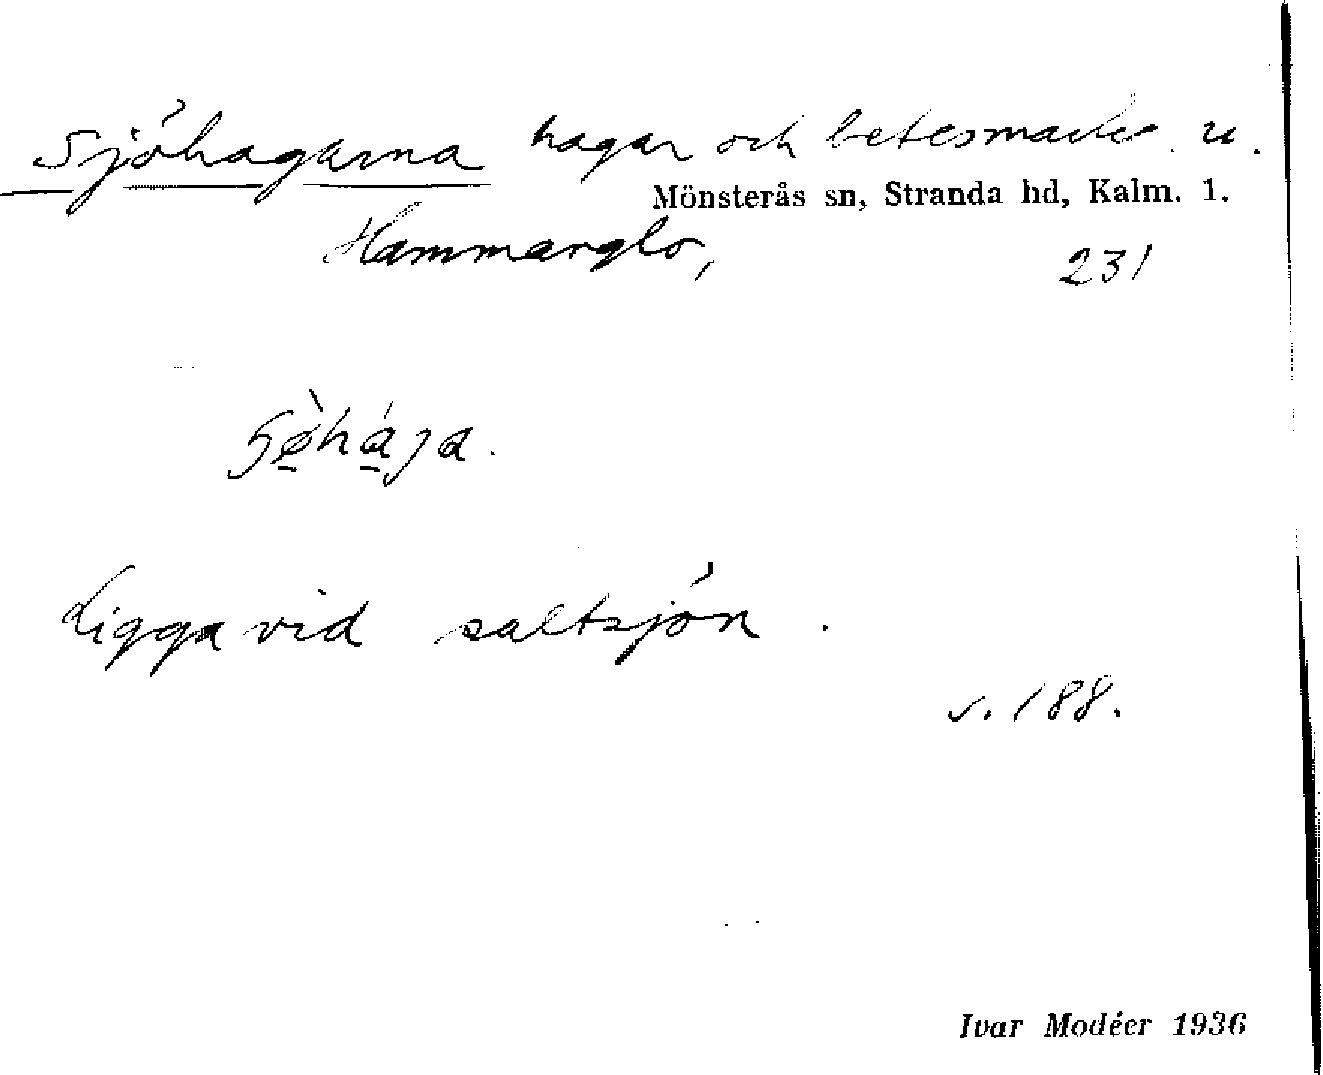 Sjöhagarna hagar och betesmarker u.
Mönsterås sn, Stranda hd, Kalm. l.
Hammarglo, 231
Ligga vid saltsjön.
s. 188.
Ivar Modéer 1936